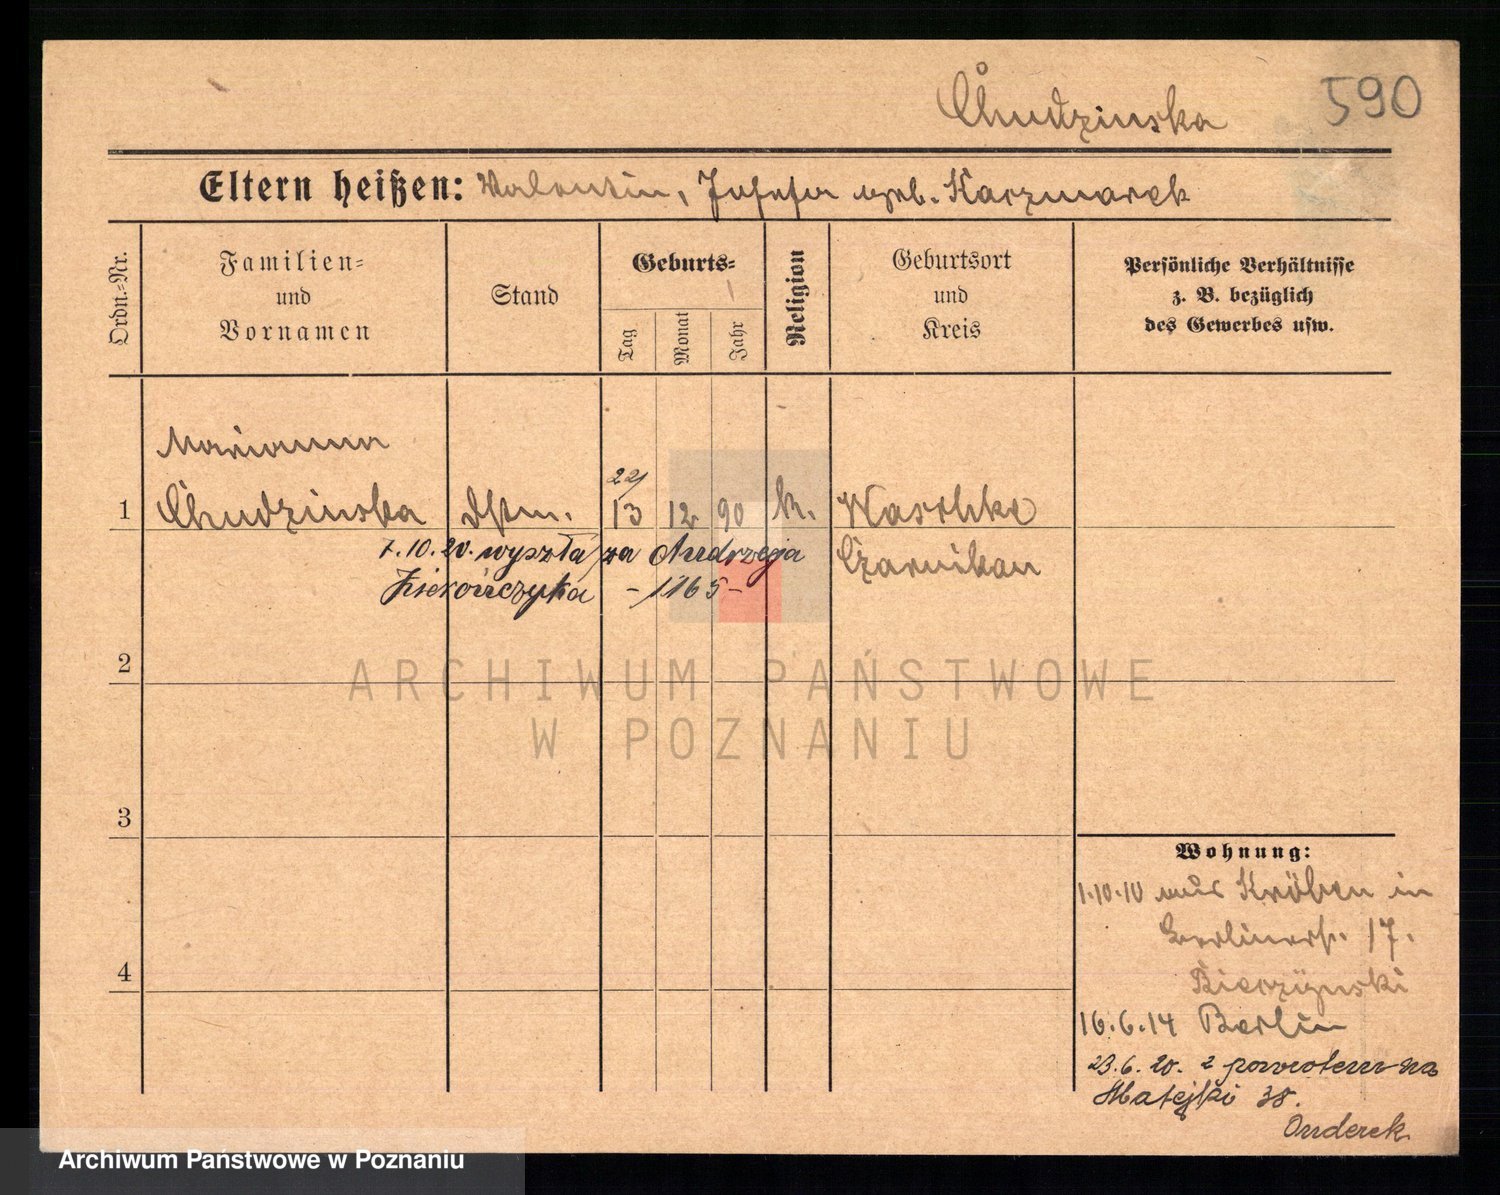 Chudzinska 590
Eltern heißen: Valentin, Josefa geb. Kaczmarek
Ordn.-Nr.
Familien-
und
Vornamen
Stand
Geburts-
Tag
Monat
Jahr
Religion
Geburtsort
und
Kreis
Persönliche Verhältnisse
z. B. bezüglich
des Gewerbes usw.
Marianna
22/
1 Chudzinska Dstm. 13 12 90 k. Waschke
Czarnikau
7.10.20. wyszła za Andrzeja
-1165-
2
3
4
Wohnung:
1.10.10 aus Kröben in
Berlinerstr. 17.
16.6.14 Berlin
23.6.20. z powrotem na
Matejki 38.
Onderek
ARCHIWUM PAŃSTWOWE
W POZNANIU
Archiwum Państwowe w Poznaniu